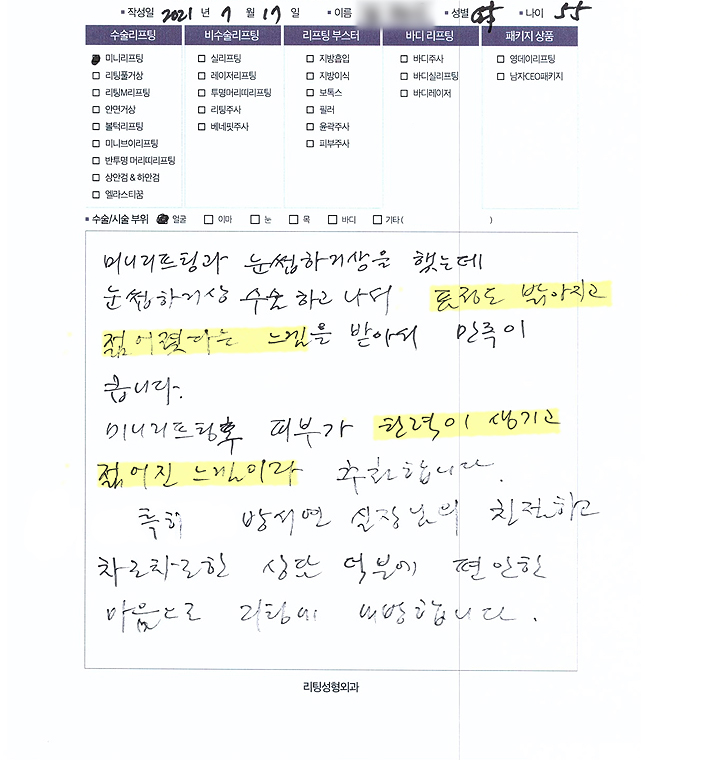 작성일 2021 년 7 월 17 일 이름 성별 여 나이 55
수술리프팅 비수술리프팅 리프팅 부스터 바디 리프팅 패키지 상품
미니리프팅 실리프팅 지방흡입 바디주사 영데이리프팅
리팅풀거상 레이저리프팅 지방이식 바디실리프팅 남자CEO패키지
리팅M리프팅 투명머리띠리프팅 보톡스 바디레이저
안면거상 리팅주사 필러
볼턱리프팅 베네핏주사 윤곽주사
미니브이리프팅 피부주사
반투명 머리띠리프팅
상안검 & 하안검
엘라스티꿈
수술/시술 부위 얼굴 이마 눈 목 바디 기타( )
미니리프팅과 눈썹하거상을 했는데
눈썹하거상 수술하고 나서 표정도 밝아지고
젊어졌다는 느낌을 받아서 만족이
큽니다.
미니리프팅후 피부가 탄력이 생기고
젊어진 느낌이라 추천합니다.
특히 방서연 실장님의 친절하고
차근차근한 상담 덕분에 편안한
마음으로 리팅에 내방합니다.
리팅성형외과